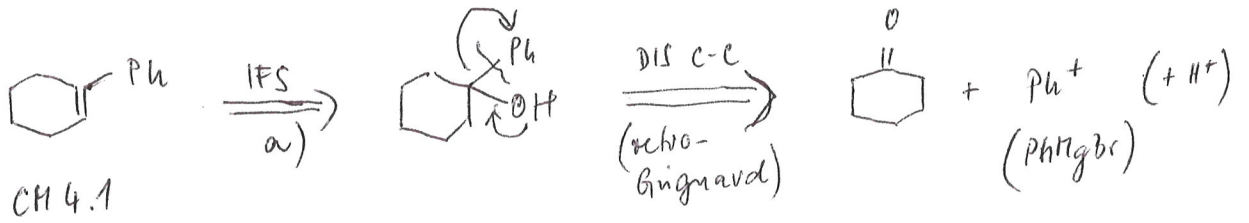 Ph
IFS
a)
Ph
OH
DIS C-C
(retro-
Grignard)
O
+ Ph+ (+ H+)
(PhMgBr)
CM 4.1